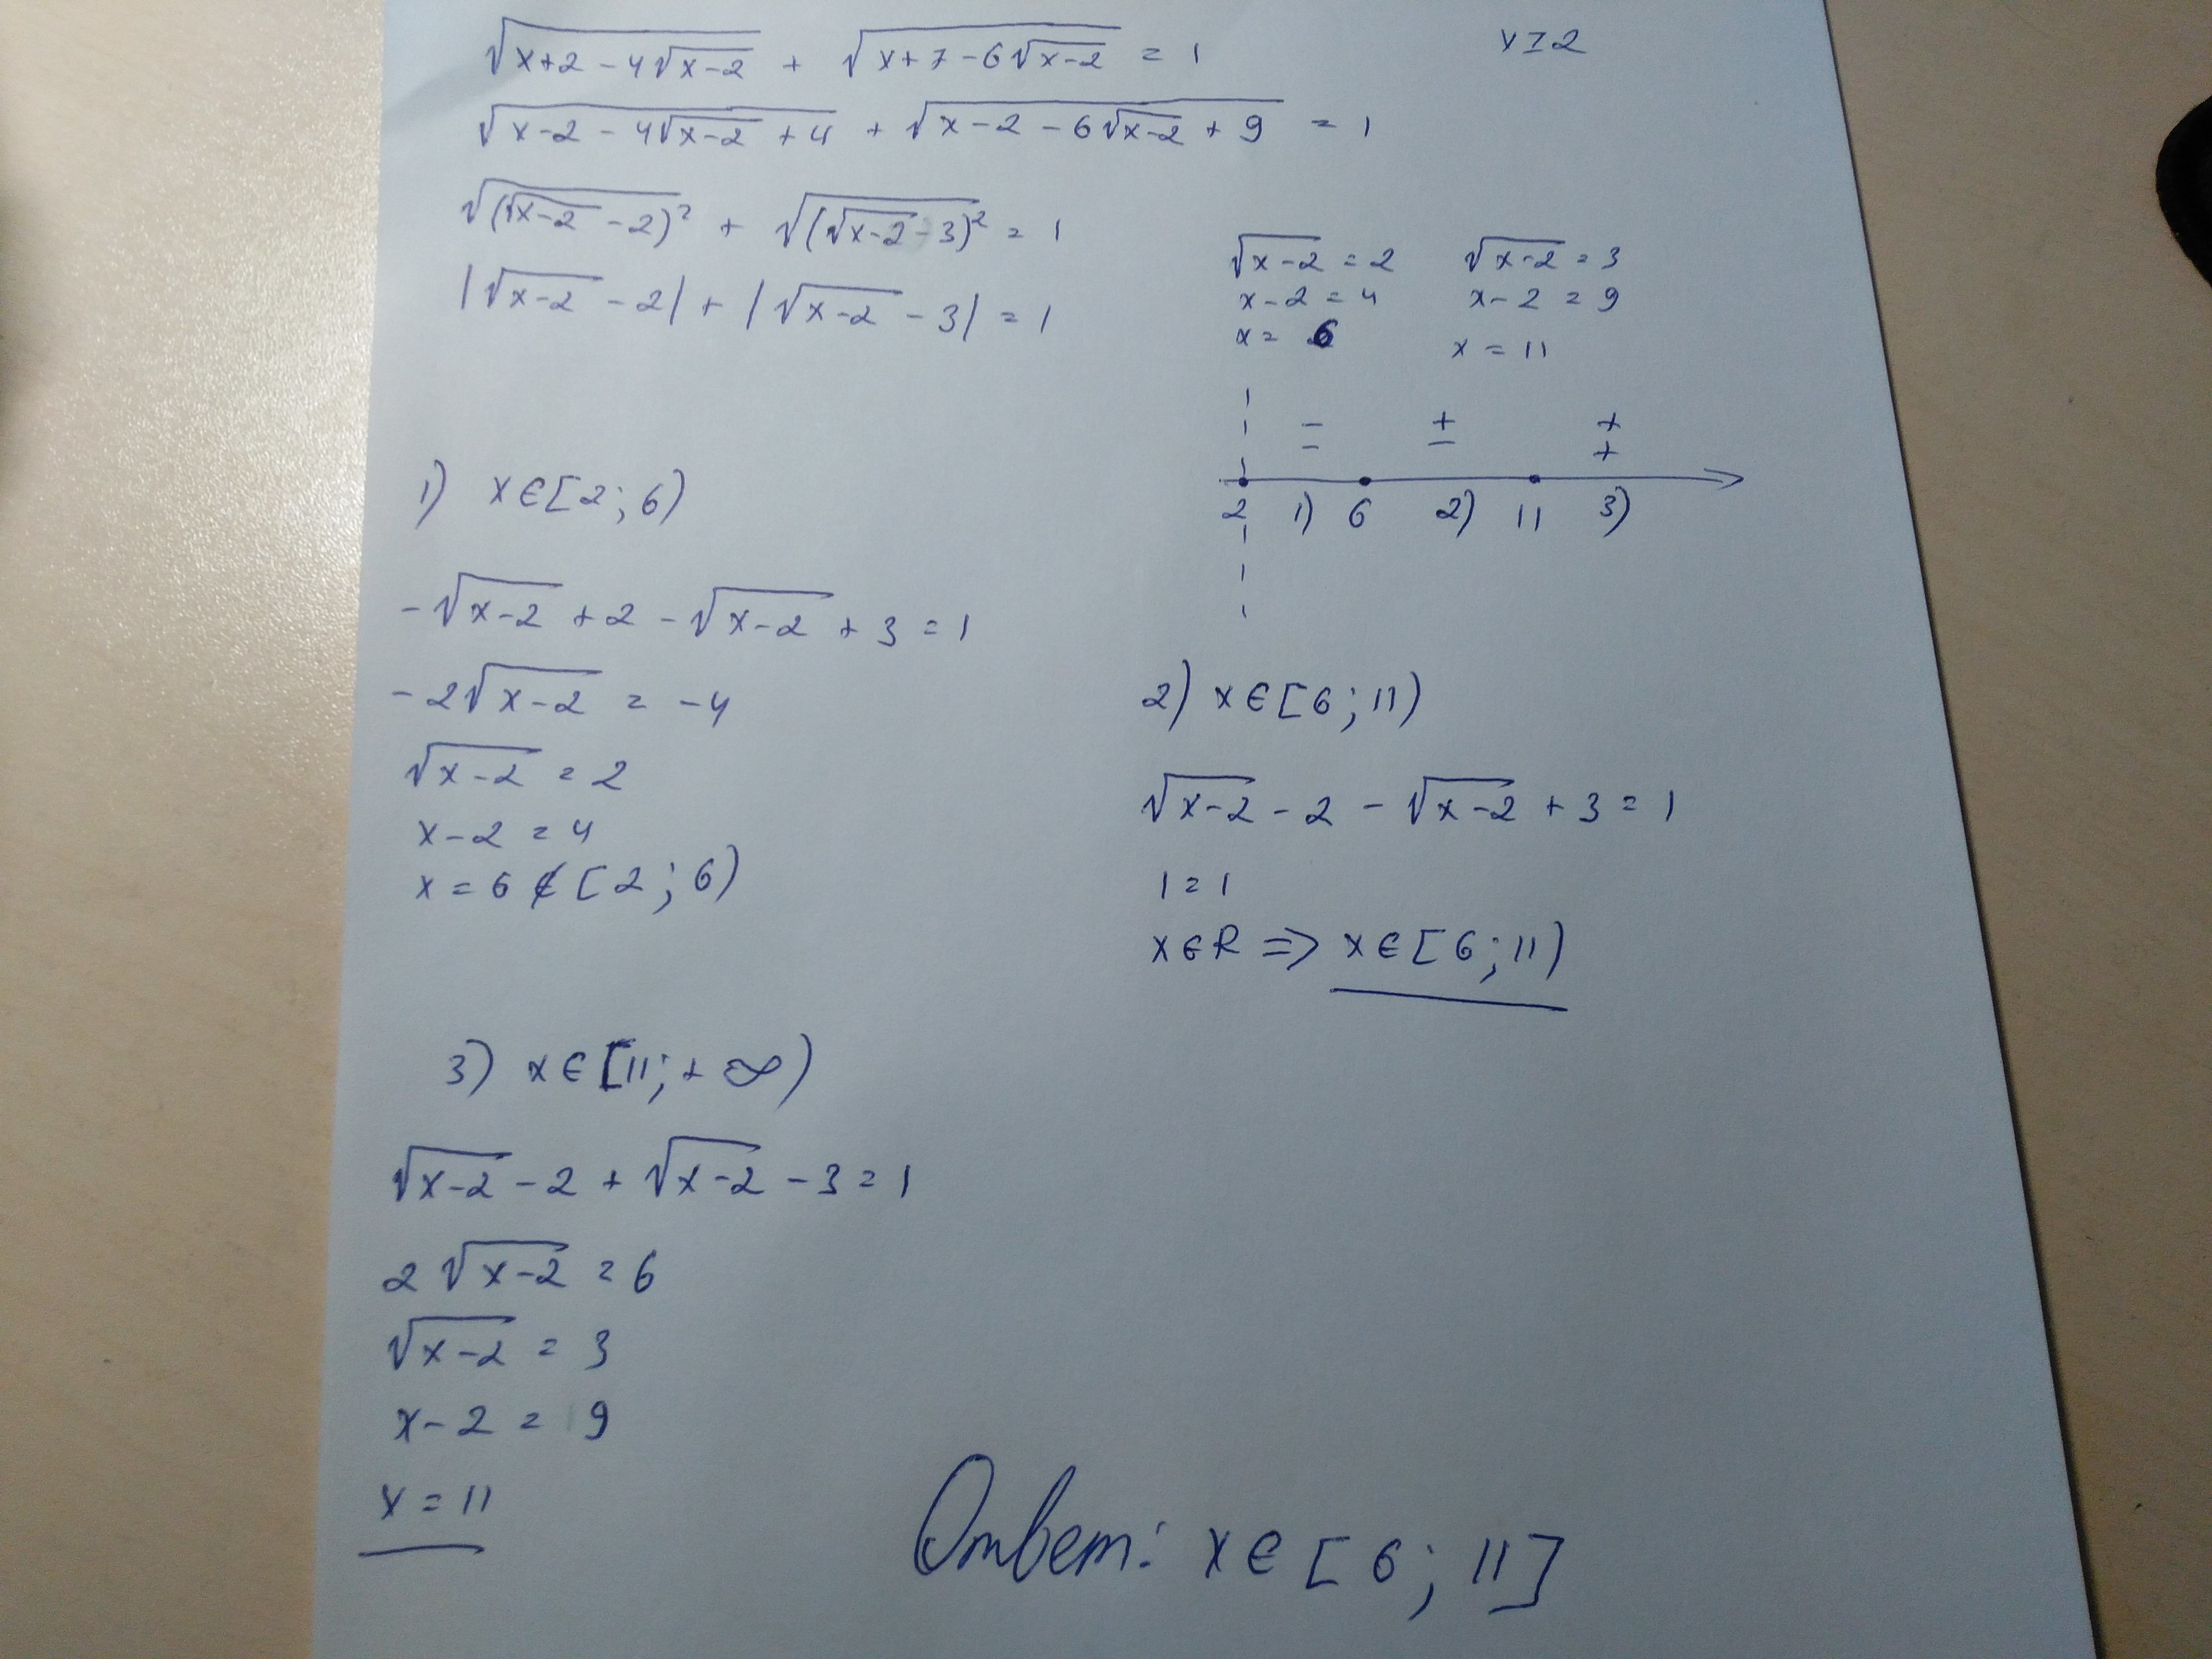 √(x+2-4√(x-2)) + √(x+7-6√(x-2)) = 1
x≥2
√(x-2-4√(x-2)+4) + √(x-2-6√(x-2)+9) = 1
√((√(x-2)-2)²) + √((√(x-2)-3)²) = 1
|√(x-2)-2| + |√(x-2)-3| = 1
√(x-2) = 2 √(x-2) = 3
x-2 = 4 x-2 = 9
x = 6 x = 11
- + +
- - +
2 1) 6 2) 11 3)
1) x∈[2;6)
-√(x-2) +2 -√(x-2) +3 = 1
-2√(x-2) = -4
√(x-2) = 2
x-2 = 4
x = 6 ∉ [2;6)
2) x∈[6;11)
√(x-2) -2 -√(x-2) +3 = 1
1 = 1
x∈R => x∈[6;11)
3) x∈[11;+∞)
√(x-2) -2 +√(x-2) -3 = 1
2√(x-2) = 6
√(x-2) = 3
x-2 = 9
x = 11
Ответ: x∈[6;11]